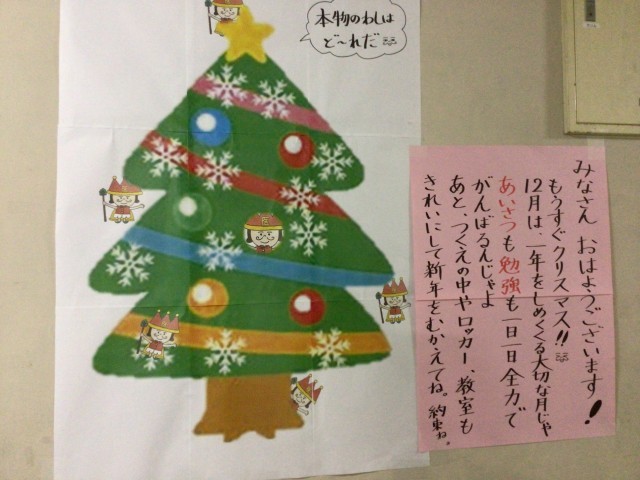 本物のわしは
ど〜れだ
みなさん おはようございます！
もうすぐクリスマス!!
12月は、一年をしめくくる大切な月じゃ
あいさつも勉強も一日一日全力で
がんばるんじゃよ
あと、つくえの中やロッカー、教室も
きれいにして新年をむかえてね。約束ね。